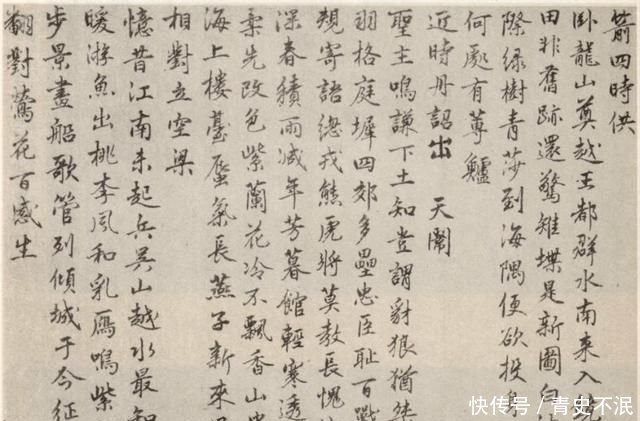 箭四時供
卧龍山奠越王都群水南来入
田非舊跡還驚雉堞是新圖白
際綠樹青莎到海隅便欲投
何處有蓴鱸
近時丹詔出 天閽
聖主鳴謙下土知豈謂豺狼猶
羽格庭墀四郊多壘忠臣恥百戰
覬寄語總戎熊虎將莫教長愧
深春積雨滅年芳暮館輕寒透
柔先改色紫蘭花冷不飄香山
海上樓臺蜃氣長燕子新來
相對立空梁
憶昔江南未起兵吳山越水最知
暖游魚出桃李風和乳雁鳴紫
步景畫船歌管列傾城于今征
翻對鶯花百感生
快传号/青史不泯